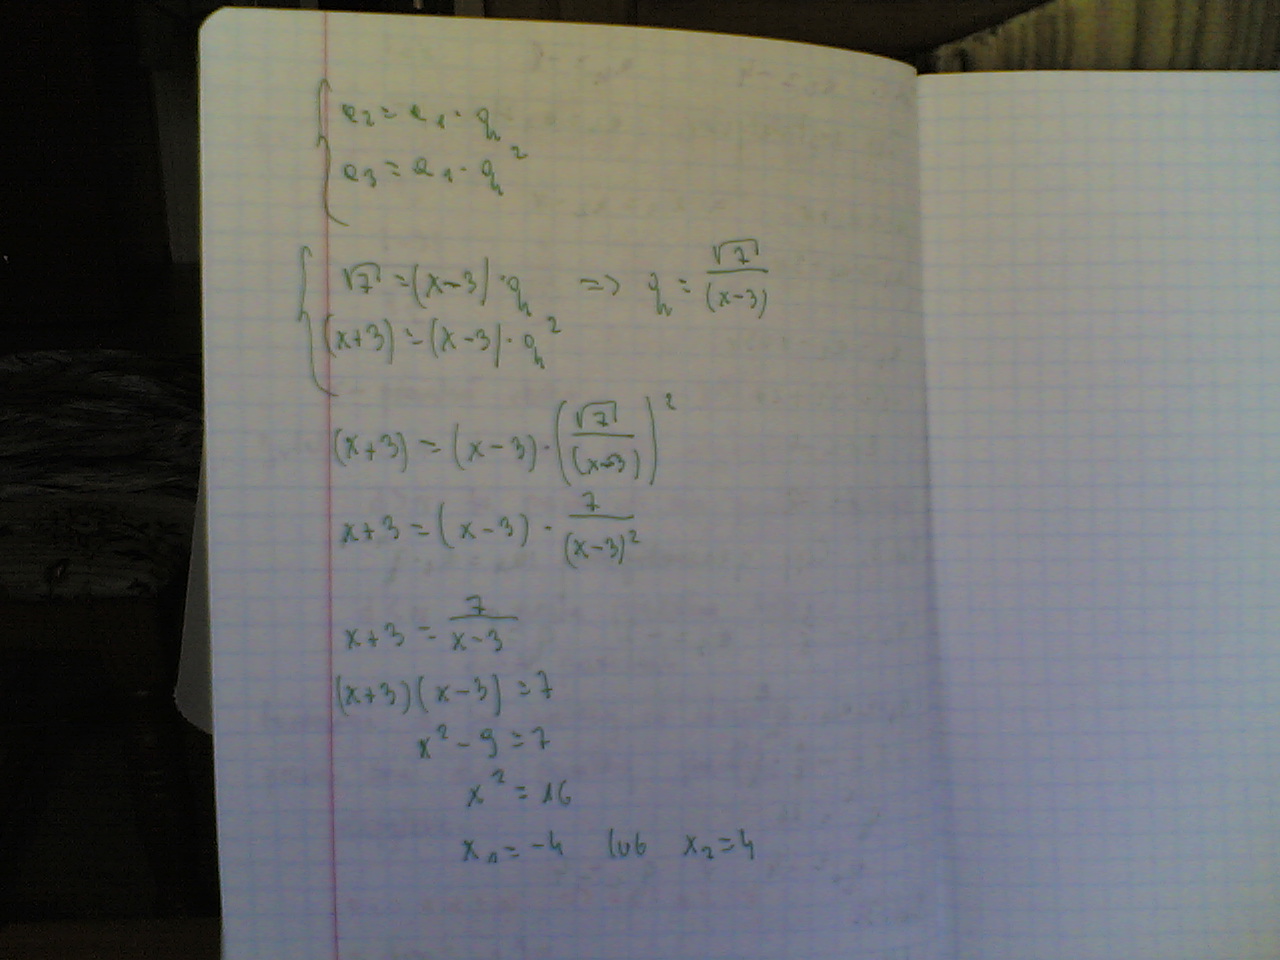 a₂ = a₁ · q
a₃ = a₁ · q²
√7 = (x-3) · q => q = √7/(x-3)
(x+3) = (x-3) · q²
(x+3) = (x-3) · (√7/(x-3))²
x+3 = (x-3) · 7/(x-3)²
x+3 = 7/(x-3)
(x+3)(x-3) = 7
x² - 9 = 7
x² = 16
x₁ = -4 lub x₂ = 4